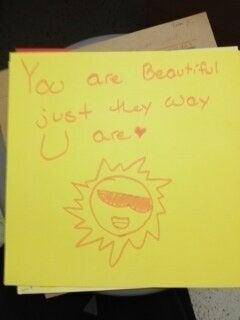 You are Beautiful
just they way
U are♥